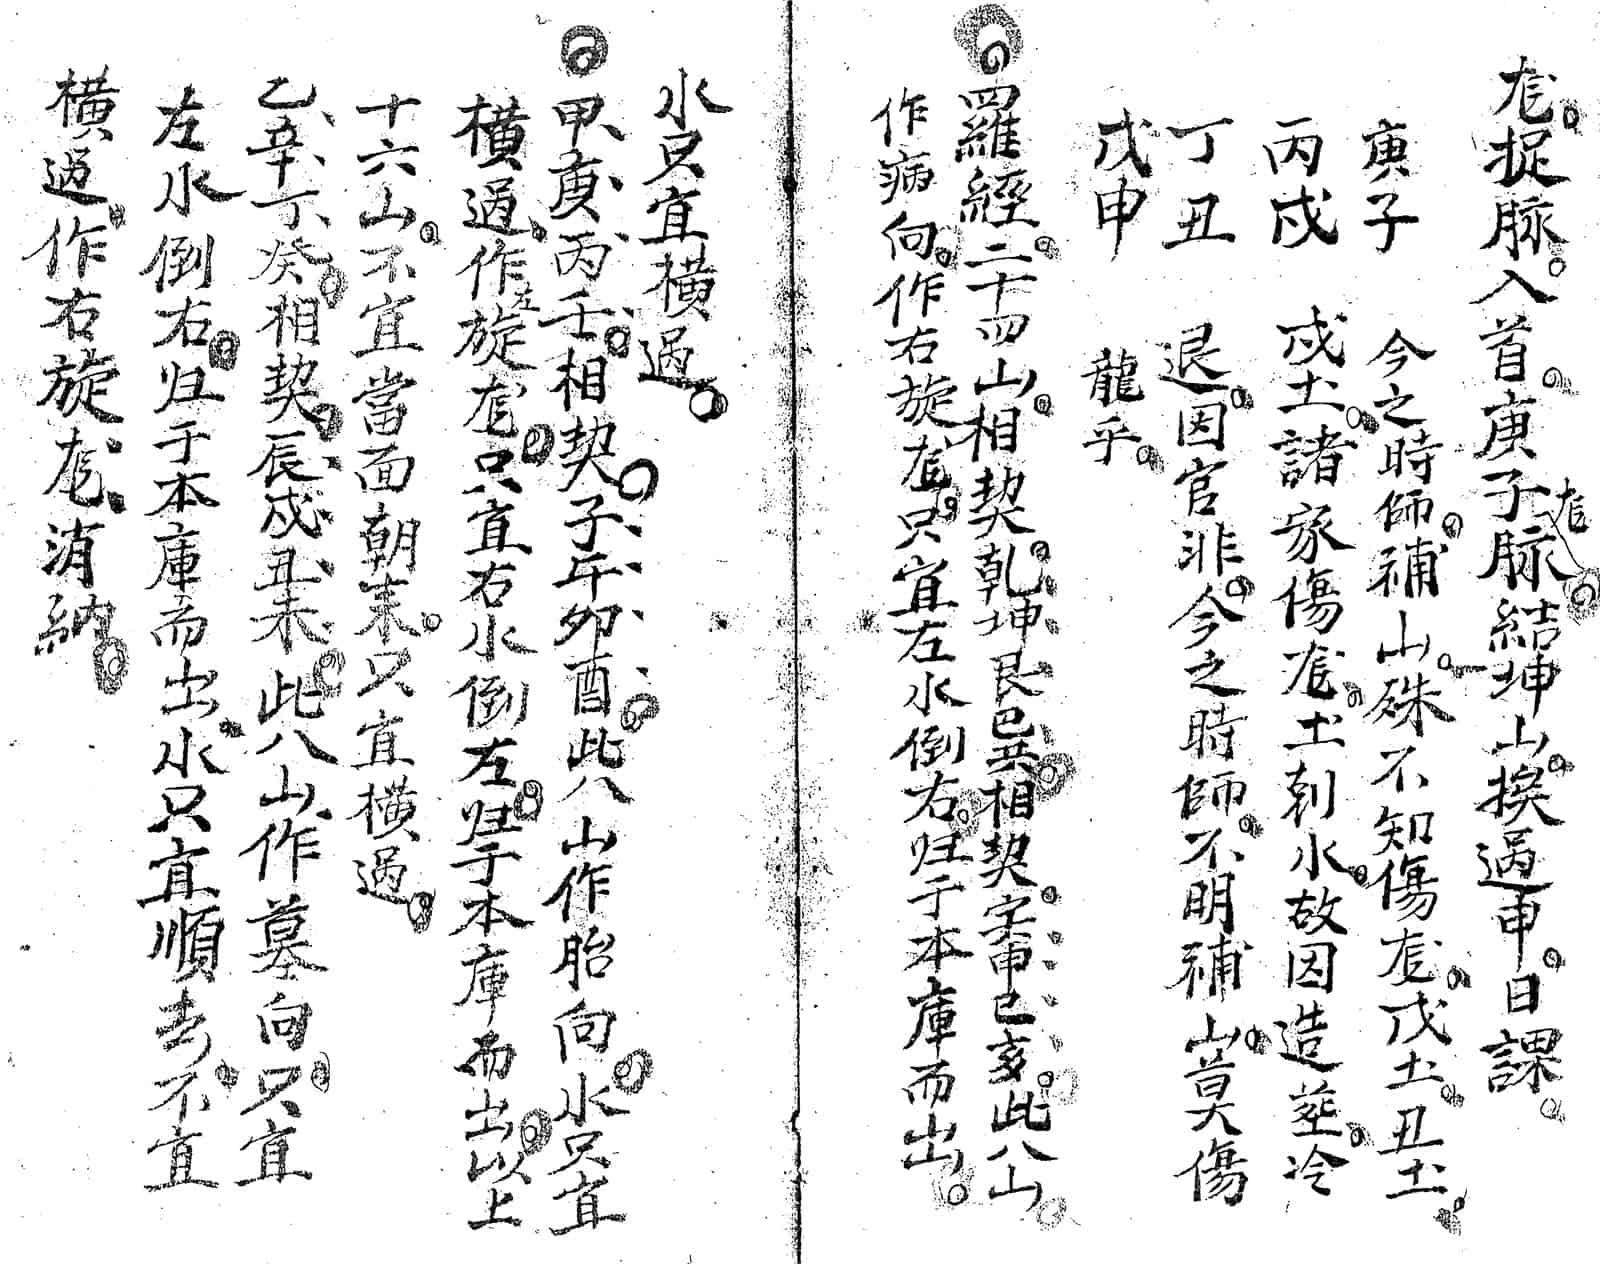 龙捉脉入首庚子龙脉結坤山挨過申日課
庚子 今之時師補山殊不知傷龙戊土丑土
丙戌 戌土諸家傷龙土剋水故因造塟冷
丁丑 退因官非今之時師不明補山莫傷
戊申 龍乎
羅經二十四山相契乾坤艮巳共相契寅申巳亥此八山
作病向作右旋龙只宜左水倒右归于本庫而出
水只宜横過
甲庚丙壬相契子午卯酉此八山作胎向水只宜
横過作左旋龙只宜右水倒左归于本庫而出以上
十六山不宜當面朝来只宜横過
乙辛丁癸相契辰戌丑未此八山作墓向只宜
左水倒右归于本庫而出水只宜順去不宜
横過作右旋龙消納